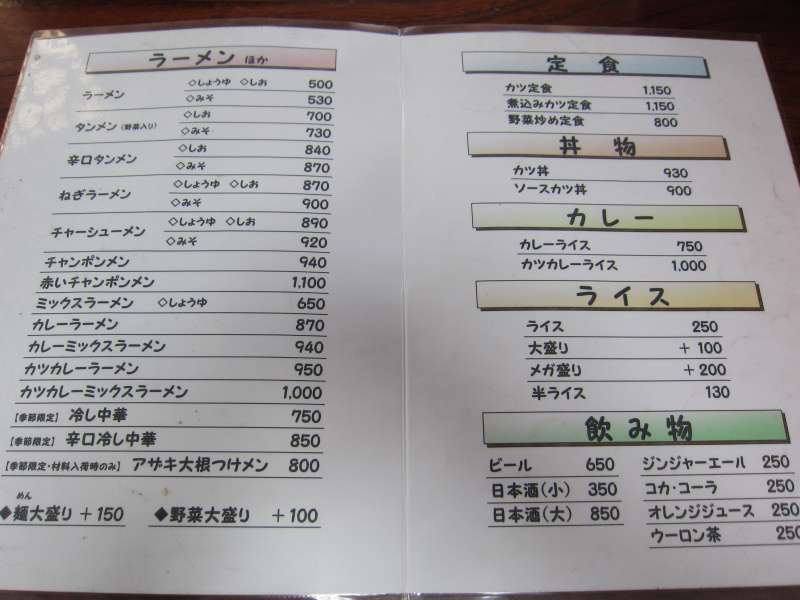 ラーメン ほか
ラーメン ◇しょうゆ ◇しお 500
◇みそ 530
タンメン（野菜入り） ◇しお 700
◇みそ 730
辛口タンメン ◇しお 840
◇みそ 870
ねぎラーメン ◇しょうゆ ◇しお 870
◇みそ 900
チャーシューメン ◇しょうゆ ◇しお 890
◇みそ 920
チャンポンメン 940
赤いチャンポンメン 1,100
ミックスラーメン ◇しょうゆ 650
カレーラーメン 870
カレーミックスラーメン 940
カツカレーラーメン 950
カツカレーミックスラーメン 1,000
【季節限定】冷し中華 750
【季節限定】辛口冷し中華 850
【季節限定・材料入荷時のみ】アザキ大根つけメン 800
めん
◆麺大盛り +150 ◆野菜大盛り +100
定食
カツ定食 1,150
煮込みカツ定食 1,150
野菜炒め定食 800
丼物
カツ丼 930
ソースカツ丼 900
カレー
カレーライス 750
カツカレーライス 1,000
ライス
ライス 250
大盛り +100
メガ盛り +200
半ライス 130
飲み物
ビール 650
日本酒（小） 350
日本酒（大） 850
ジンジャーエール 250
コカ・コーラ 250
オレンジジュース 250
ウーロン茶 250